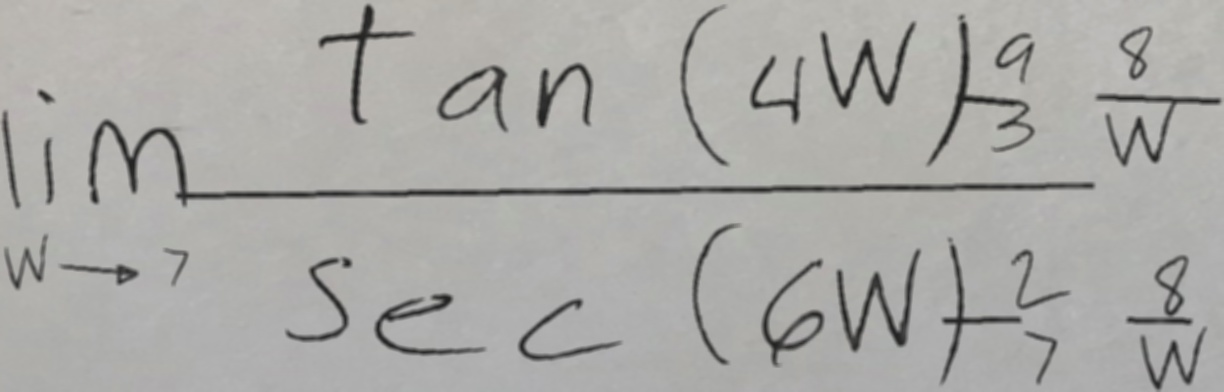 lim_{w \to 7} \frac{\tan(4w)\frac{9}{3}\frac{8}{w}}{\sec(6w)\frac{2}{7}\frac{8}{w}}